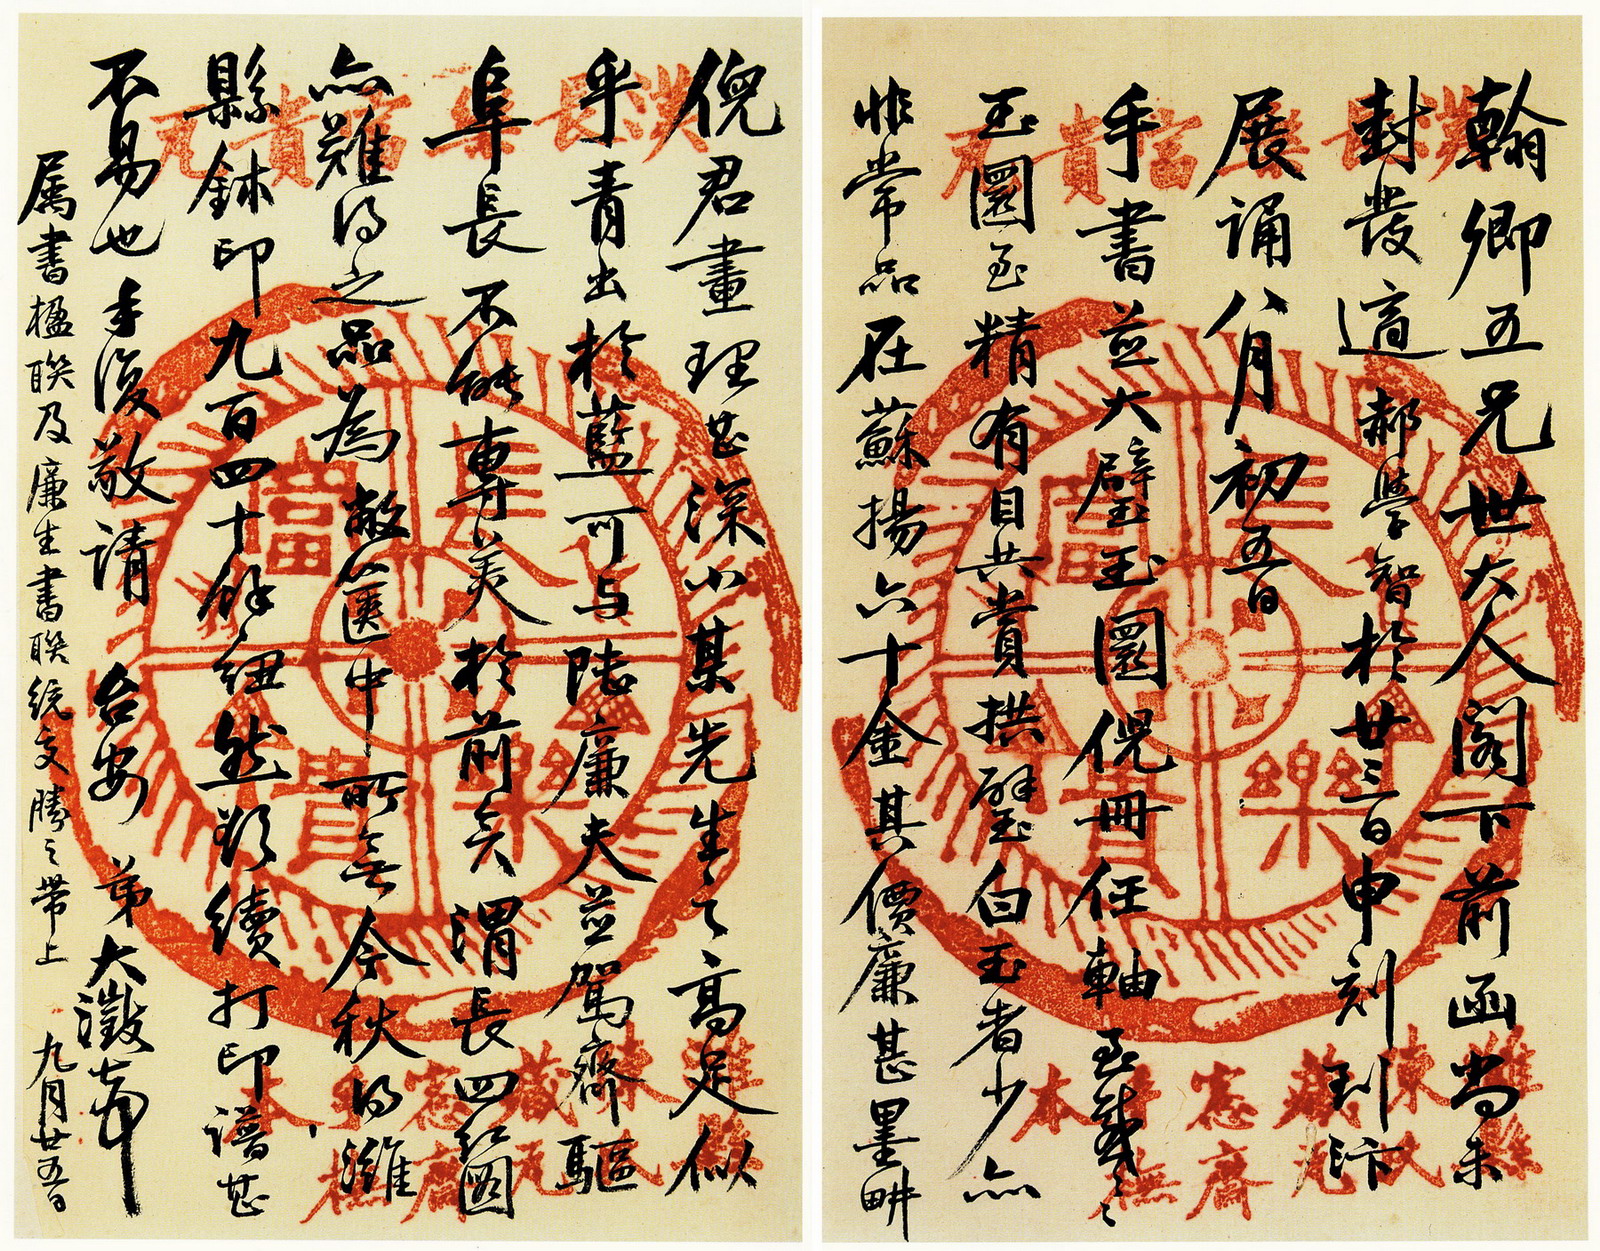 翰卿五兄世大人閣下前函尚未
封發適郝學智於廿三日申刻到汴
展誦八月初五日
手書並大璧玉圜倪冊任軸至感〻
玉圜至精有目共賞拱璧白玉者少亦
非常品在蘇揚六十金其價廉甚墨畊
倪君畫理甚深小某先生之高足似
乎青出於藍可与陸廉夫並駕齊驅
阜長不能專美於前矣渭長四紅圖
亦難得之品為敝篋中所無今秋得濰
縣鉥印九百四十餘鈕然欲續打印譜甚
不易也手復敬請台安弟大澂頓
屬書楹聯及廉生書聯統交勝之帶上九月廿五日
富貴
長樂